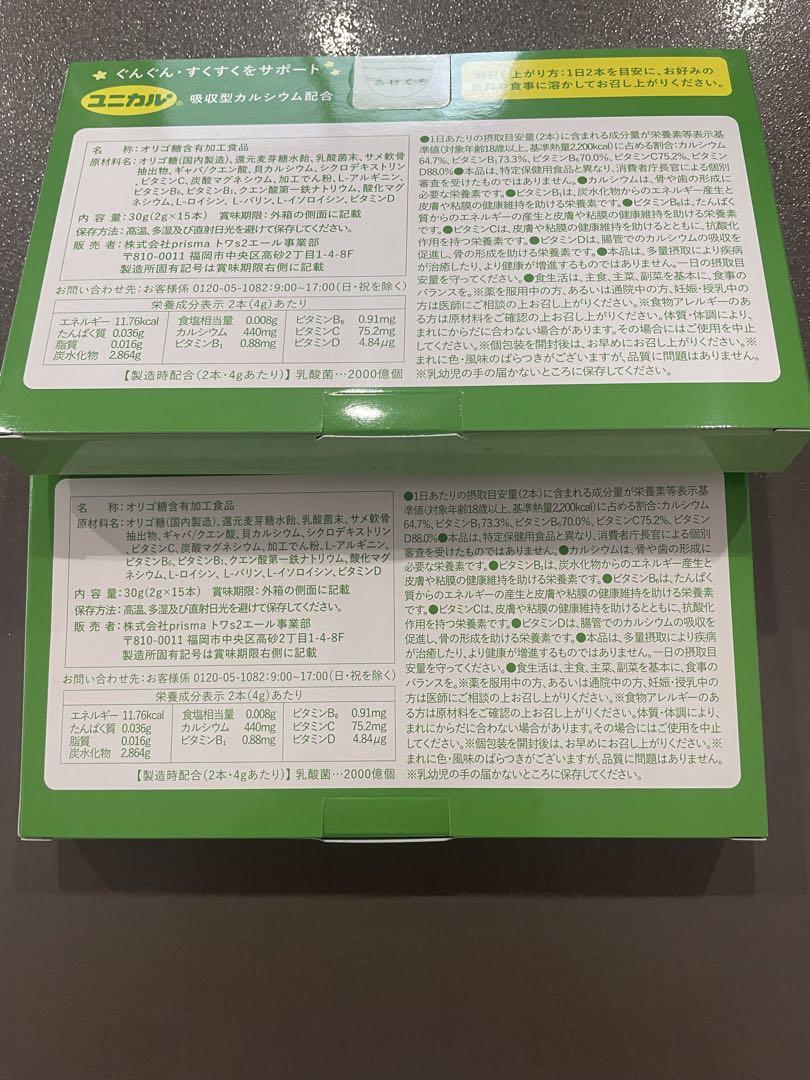 ぐんぐん・すくすくをサポート
ユニカル® 吸収型カルシウム配合
あけくち
お召し上がり方：1日2本を目安に、お好みの
飲料や食事に溶かしてお召し上がりください。
名　称：オリゴ糖含有加工食品
原材料名：オリゴ糖(国内製造)、還元麦芽糖水飴、乳酸菌末、サメ軟骨
抽出物、ギャバ/クエン酸、貝カルシウム、シクロデキストリン
、ビタミンC、炭酸マグネシウム、加工でん粉、L-アルギニン、
ビタミンB₆、ビタミンB₁、クエン酸第一鉄ナトリウム、酸化マグ
ネシウム、L-ロイシン、L-バリン、L-イソロイシン、ビタミンD
内 容 量：30g(2g×15本)　賞味期限：外箱の側面に記載
保存方法：高温、多湿及び直射日光を避けて保存してください。
販 売 者：株式会社prisma トワs2エール事業部
〒810-0011 福岡市中央区高砂2丁目1-4-8F
製造所固有記号は賞味期限右側に記載
お問い合わせ先：お客様係 0120-05-1082：9:00~17:00(日・祝を除く)
栄養成分表示 2本(4g)あたり
エネルギー 11.76kcal 食塩相当量 0.008g ビタミンB₆ 0.91mg
たんぱく質 0.036g カルシウム 440mg ビタミンC 75.2mg
脂質 0.016g ビタミンB₁ 0.88mg ビタミンD 4.84μg
炭水化物 2.864g
【製造時配合(2本・4gあたり)】乳酸菌…2000億個
●1日あたりの摂取目安量(2本)に含まれる成分量が栄養素等表示基
準値(対象年齢18歳以上、基準熱量2,200kcal)に占める割合：カルシウム
64.7%、ビタミンB₁73.3%、ビタミンB₆70.0%、ビタミンC75.2%、ビタミン
D88.0%●本品は、特定保健用食品と異なり、消費者庁長官による個別
審査を受けたものではありません。●カルシウムは、骨や歯の形成に
必要な栄養素です。●ビタミンB₁は、炭水化物からのエネルギー産生と
皮膚や粘膜の健康維持を助ける栄養素です。●ビタミンB₆は、たんぱく
質からのエネルギーの産生と皮膚や粘膜の健康維持を助ける栄養素
です。●ビタミンCは、皮膚や粘膜の健康維持を助けるとともに、抗酸化
作用を持つ栄養素です。●ビタミンDは、腸管でのカルシウムの吸収を
促進し、骨の形成を助ける栄養素です。●本品は、多量摂取により疾病
が治癒したり、より健康が増進するものではありません。一日の摂取目
安量を守ってください。●食生活は、主食、主菜、副菜を基本に、食事の
バランスを。※薬を服用中の方、あるいは通院中の方、妊娠・授乳中の
方は医師にご相談の上お召し上がりください。※食物アレルギーのあ
る方は原材料をご確認の上お召し上がりください。体質・体調により、
まれにからだに合わない場合があります。その場合にはご使用を中止
してください。※個包装を開封後は、お早めにお召し上がりください。※
まれに色・風味のばらつきがございますが、品質に問題はありません。
※乳幼児の手の届かないところに保存してください。
名　称：オリゴ糖含有加工食品
原材料名：オリゴ糖(国内製造)、還元麦芽糖水飴、乳酸菌末、サメ軟骨
抽出物、ギャバ/クエン酸、貝カルシウム、シクロデキストリン
、ビタミンC、炭酸マグネシウム、加工でん粉、L-アルギニン、
ビタミンB₆、ビタミンB₁、クエン酸第一鉄ナトリウム、酸化マグ
ネシウム、L-ロイシン、L-バリン、L-イソロイシン、ビタミンD
内 容 量：30g(2g×15本)　賞味期限：外箱の側面に記載
保存方法：高温、多湿及び直射日光を避けて保存してください。
販 売 者：株式会社prisma トワs2エール事業部
〒810-0011 福岡市中央区高砂2丁目1-4-8F
製造所固有記号は賞味期限右側に記載
お問い合わせ先：お客様係 0120-05-1082：9:00~17:00(日・祝を除く)
栄養成分表示 2本(4g)あたり
エネルギー 11.76kcal 食塩相当量 0.008g ビタミンB₆ 0.91mg
たんぱく質 0.036g カルシウム 440mg ビタミンC 75.2mg
脂質 0.016g ビタミンB₁ 0.88mg ビタミンD 4.84μg
炭水化物 2.864g
【製造時配合(2本・4gあたり)】乳酸菌…2000億個
●1日あたりの摂取目安量(2本)に含まれる成分量が栄養素等表示基
準値(対象年齢18歳以上、基準熱量2,200kcal)に占める割合：カルシウム
64.7%、ビタミンB₁73.3%、ビタミンB₆70.0%、ビタミンC75.2%、ビタミン
D88.0%●本品は、特定保健用食品と異なり、消費者庁長官による個別
審査を受けたものではありません。●カルシウムは、骨や歯の形成に
必要な栄養素です。●ビタミンB₁は、炭水化物からのエネルギー産生と
皮膚や粘膜の健康維持を助ける栄養素です。●ビタミンB₆は、たんぱく
質からのエネルギーの産生と皮膚や粘膜の健康維持を助ける栄養素
です。●ビタミンCは、皮膚や粘膜の健康維持を助けるとともに、抗酸化
作用を持つ栄養素です。●ビタミンDは、腸管でのカルシウムの吸収を
促進し、骨の形成を助ける栄養素です。●本品は、多量摂取により疾病
が治癒したり、より健康が増進するものではありません。一日の摂取目
安量を守ってください。●食生活は、主食、主菜、副菜を基本に、食事の
バランスを。※薬を服用中の方、あるいは通院中の方、妊娠・授乳中の
方は医師にご相談の上お召し上がりください。※食物アレルギーのあ
る方は原材料をご確認の上お召し上がりください。体質・体調により、
まれにからだに合わない場合があります。その場合にはご使用を中止
してください。※個包装を開封後は、お早めにお召し上がりください。※
まれに色・風味のばらつきがございますが、品質に問題はありません。
※乳幼児の手の届かないところに保存してください。